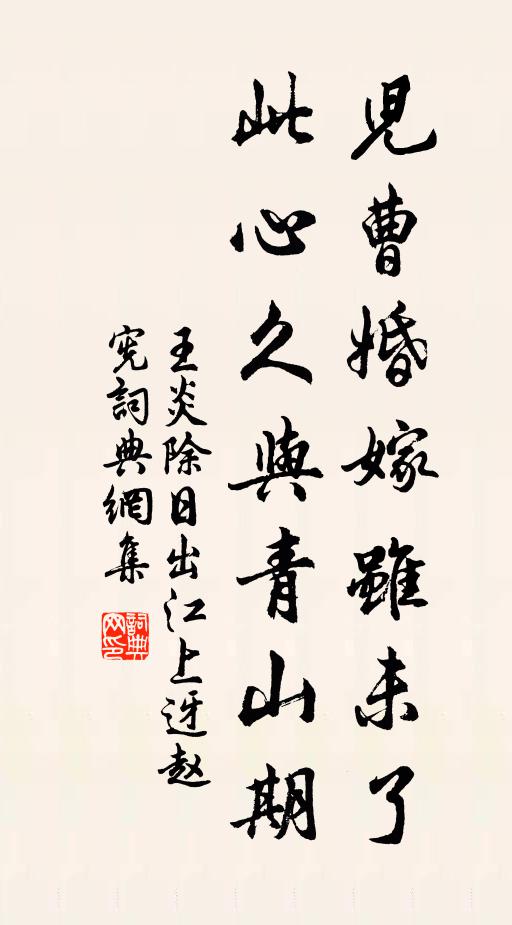 児曹婚嫁雖未了
此心久與青山期
王炎除日出江上迓赵
宪詞典網集
詞典网印